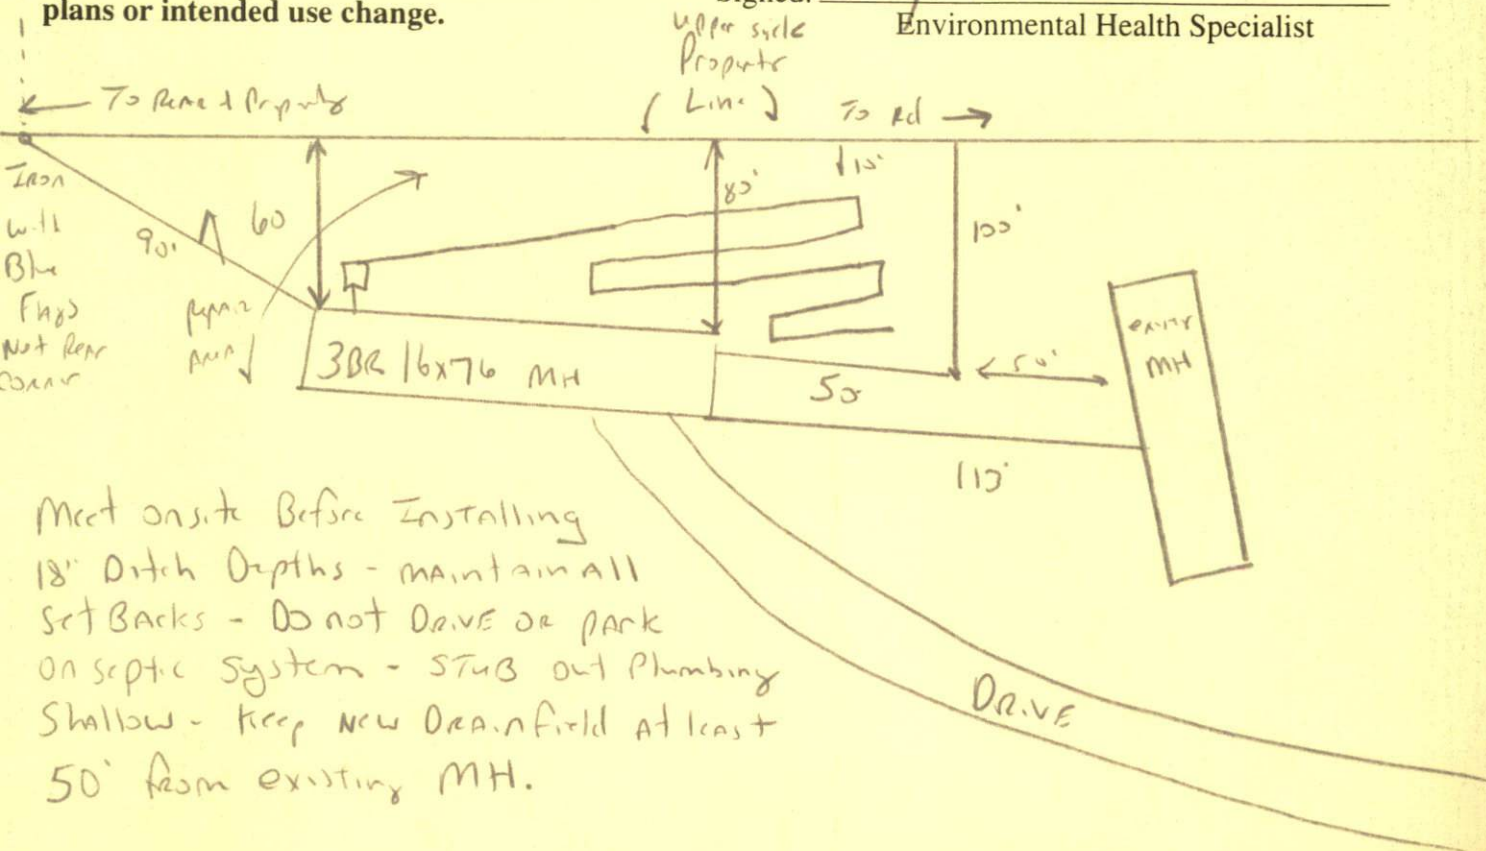 plans or intended use change.
Signed:
Environmental Health Specialist
upper side
Property
( Line )
← To Rear of Property
To Rd →
Iron
with
Blue
Flags
Not Rear
Corner
90'
60
80'
10'
100'
repair
area
3BR 16x76 MH
50
50'
MH
110'
Meet onsite Before Installing
18" Ditch Depths - maintain All
Set Backs - Do not Drive or park
on septic system - STUB out Plumbing
Shallow - Keep New Drainfield At least
50' from existing MH.
Drive